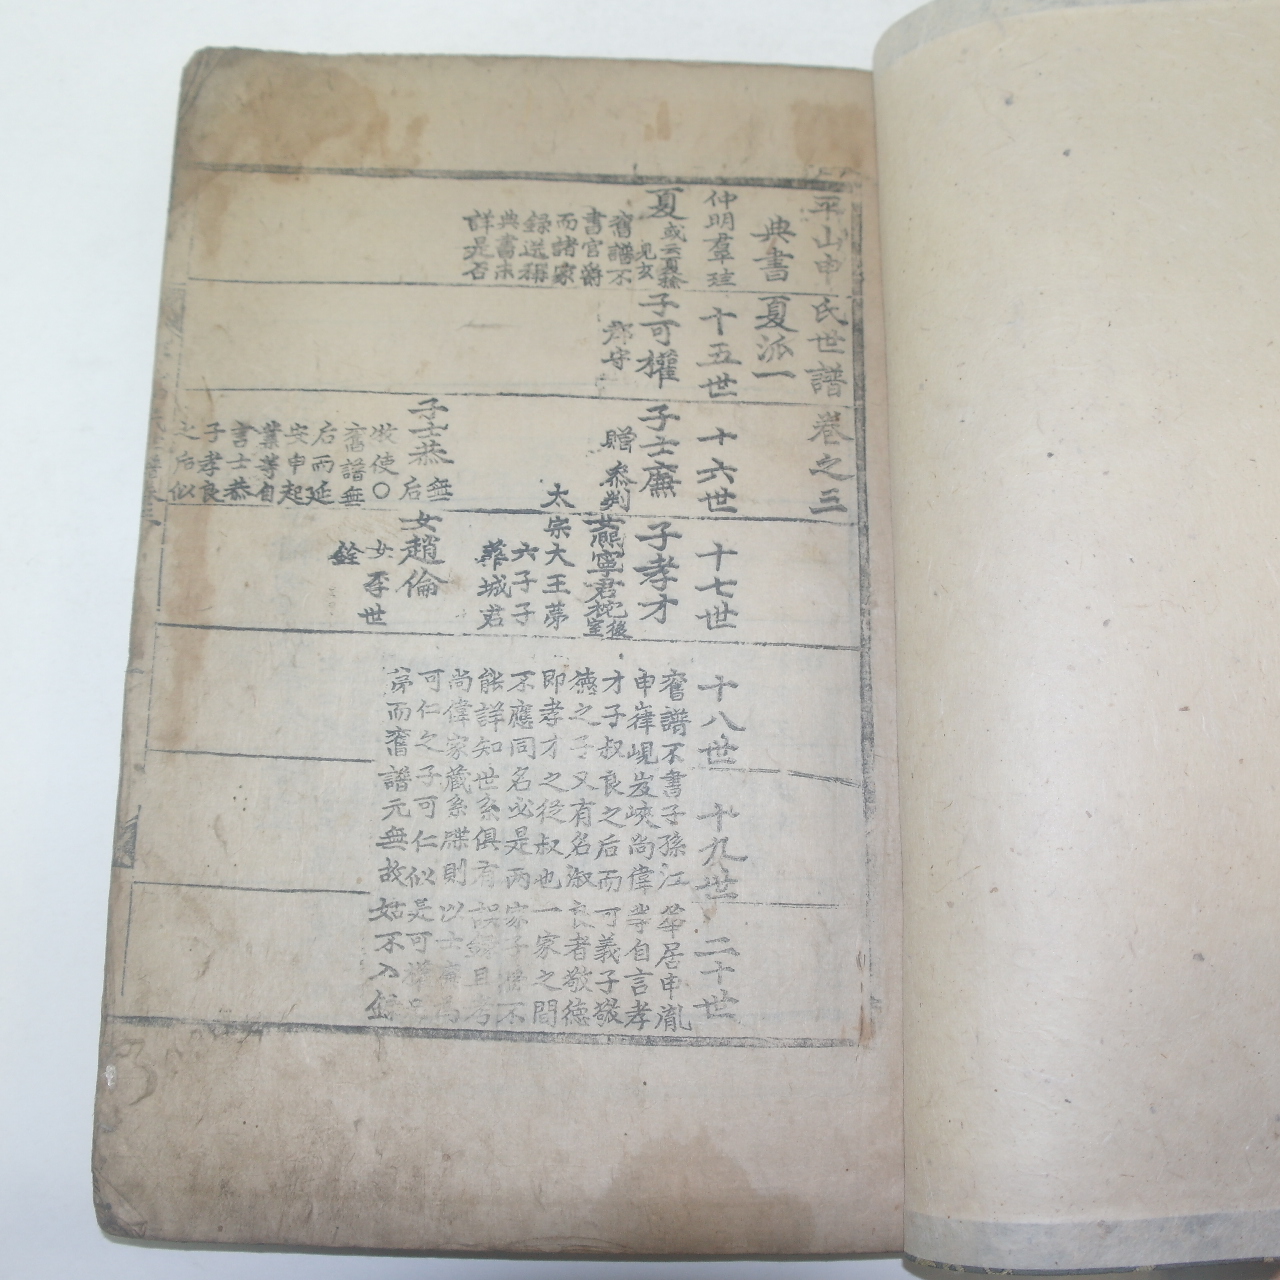 平山申氏世譜卷之三
典書夏派一
仲明羣珪
十五世
十六世
十七世
十八世
十九世
二十世
夏
或云夏
見玄
舊譜不
書官爵
而諸家
錄送稱
典書未
詳是否
子可權
郡守
子士廉
贈參判
子孝才
寧君
後室
太宗大王第
六子子
城君
舊譜不書子孫江華居申胤
申嵂峴岌峽尚偉等自言孝
才子叔良之后而可義子敬
德之子又有名淑良者敬德
即孝才之從叔也一家之間
不應同名必是兩家子將不
能詳知世系俱有誤錄且考
尚偉家藏系牒則以士廉爲
可仁之子可仁似是可權兄
弟而舊譜元無故姑不入錄
子士恭
無后
使〇
舊譜無
后而延
安申起
業等自
言士恭
子孝良
之后似
女趙倫
女李世
銓